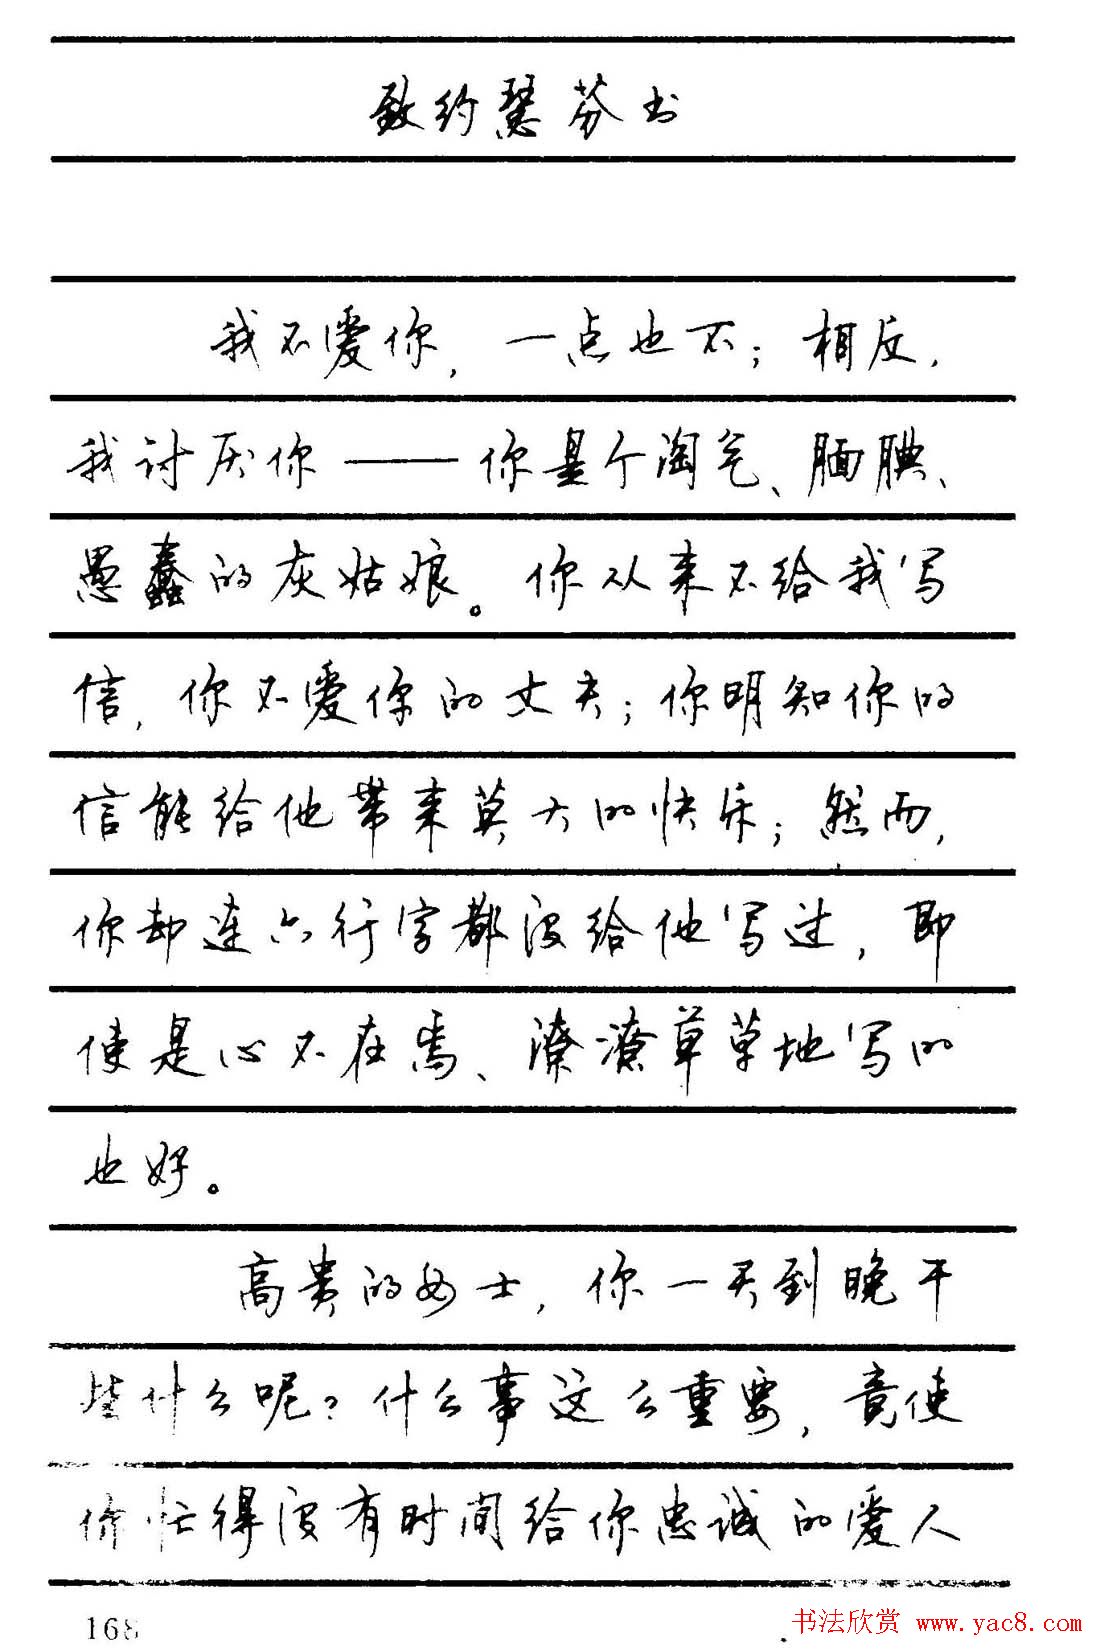 致约瑟芬书
我不爱你，一点也不；相反，
我讨厌你——你是个淘气、腼腆、
愚蠢的灰姑娘。你从来不给我写
信，你不爱你的丈夫；你明知你的
信能给他带来莫大的快乐；然而，
你却连六行字都没给他写过，即
使是心不在焉、潦潦草草地写的
也好。
高贵的女士，你一天到晚干
些什么呢？什么事这么重要，竟使
你忙得没有时间给你忠诚的爱人
168
书法欣赏 www.yac8.com